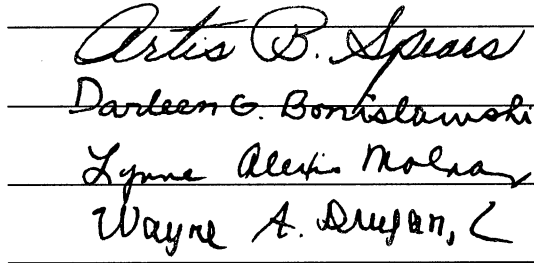 Artis B. Spears
Darleen G. Bonislawski
Lynne Alexis Molnar
Wayne A. Drugan,